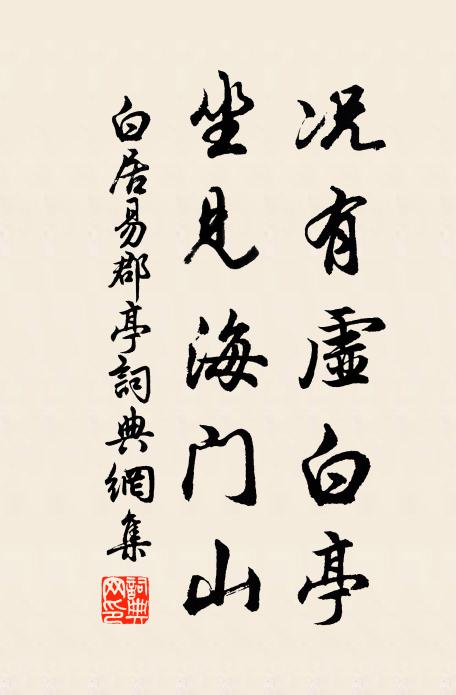 况有虚白亭
坐见海门山
白居易郡亭詞典網集
詞典网印